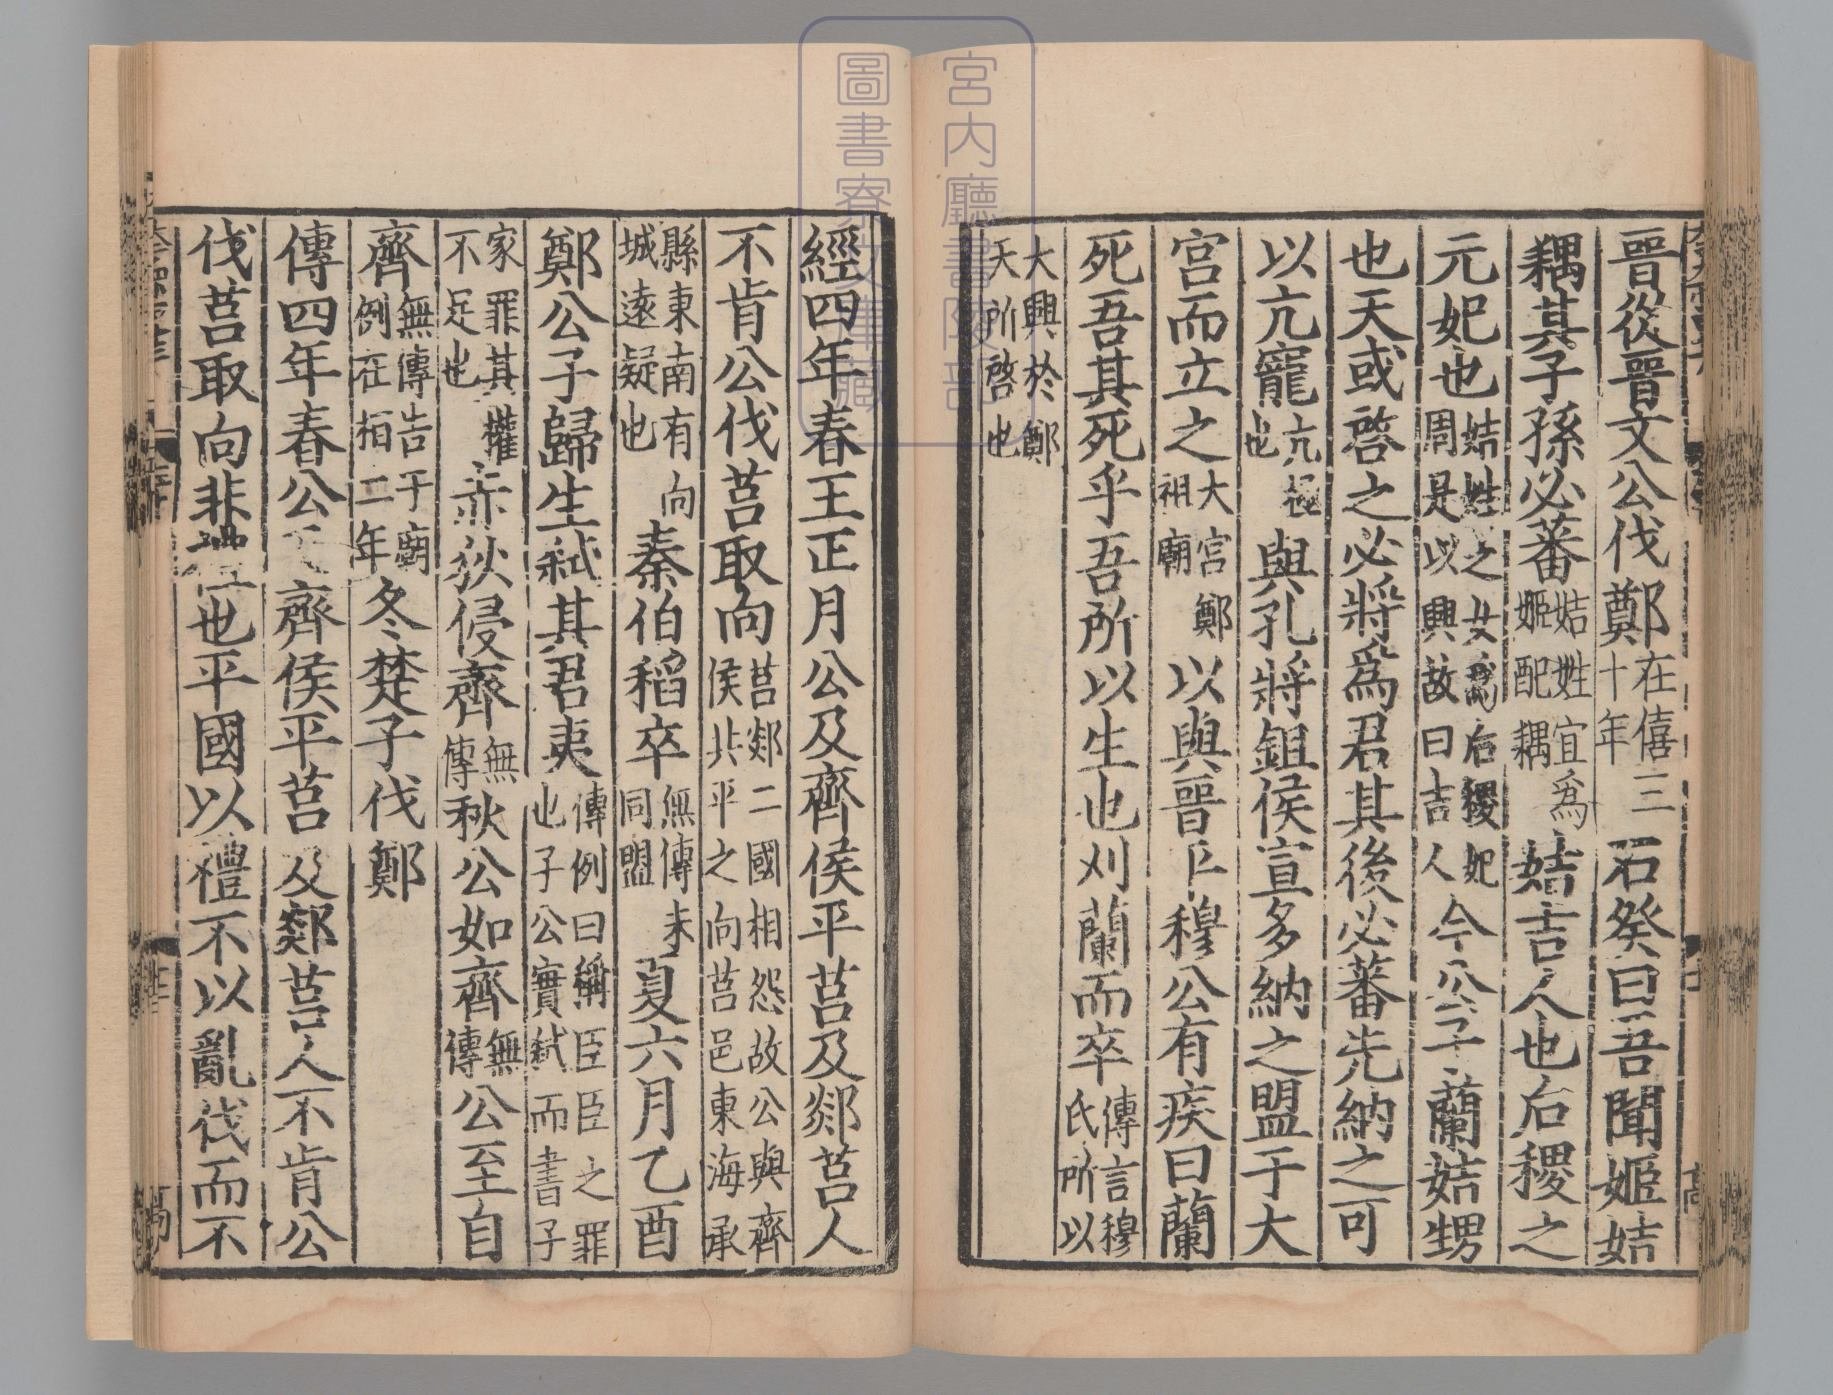 宮内廳書陵部
圖書寮文庫藏
晋從晋文公伐鄭在僖三十年石癸曰吾聞姬姞
耦其子孫必蕃姞姓宜爲姬配耦姞吉人也后稷之
元妃也姞姓之女爲后稷妃周是以興故曰吉人今公子蘭姞甥
也天或啓之必將爲君其後必蕃先納之可
以亢寵亢極也與孔將鉏侯宣多納之盟于大
宮而立之大宮鄭祖廟以與晋穆公有疾曰蘭
死吾其死乎吾所以生也刈蘭而卒傳言穆氏所以
大興於鄭天所啓也
經四年春王正月公及齊侯平莒及郯莒人
不肯公伐莒取向莒郯二國相怨故公與齊侯共平之向莒邑東海承
縣東南有向城遠疑也秦伯稻卒無傳未同盟夏六月乙酉
鄭公子歸生弑其君夷傳例曰稱臣臣之罪也子公實弑而書子
家罪其權不足也赤狄侵齊無傳秋公如齊無傳公至自
齊無傳告于廟例在桓二年冬楚子伐鄭
傳四年春公齊侯平莒及郯莒人不肯公
伐莒取向非禮也平國以禮不以亂伐而不